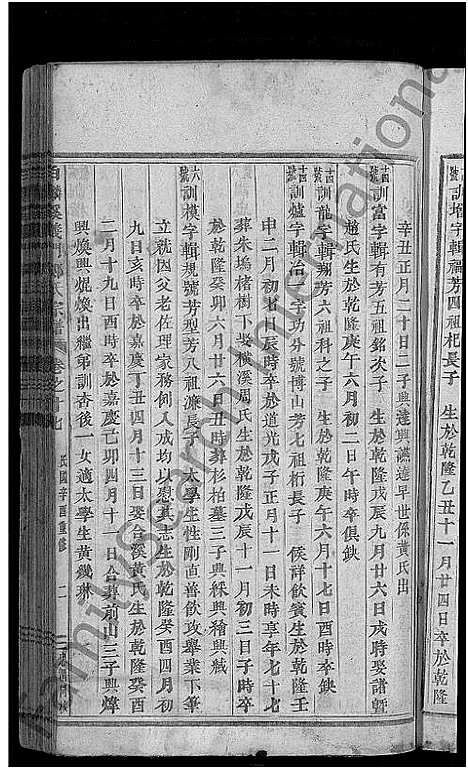 訓增字輯福芳四祖杞長子 生於乾隆乙丑十一月廿四日卒於乾隆
辛丑正月二十日二子興達興讌達早世係黃氏出
十四號訓富字輯有芳五祖銘次子 生於乾隆戊辰九月廿六日戌時娶諸暨
趙氏生於乾隆庚午六月初二日午時卒俱缺
十四號訓龍字輯翔芳六祖科之子 生於乾隆庚午六月十七日酉時卒缺
十四號訓爐字輯冶一字功分號博山芳七祖桁長子 候詳飲賓生於乾隆壬
申二月初七日辰時卒於道光戊子正月十一日未時享年七十七
葬朱塢楮樹下娶橫溪周氏生於乾隆戊辰十一月初三日子時卒
於乾隆癸卯六月廿六日丑時葬杉柏墓三子興綵興繪興絨
十六號訓模字輯規號芳型芳八祖濂長子 太學生性剛直善飲攻舉業下筆
立就因父老佐理家務倒人成均以慰其志生於乾隆癸酉四月初
九日亥時卒於嘉慶丁丑四月十三日娶合溪黃氏生於乾隆癸酉
二月十九日酉時卒於嘉慶己卯四月十一日合葬前山三子興煒
興煥興焜煥出繼弟訓杳後一女適太學生黃幾琳
白麟溪義門鄭氏宗譜 卷之十七 民國辛酉重修 二
FamilySearch International